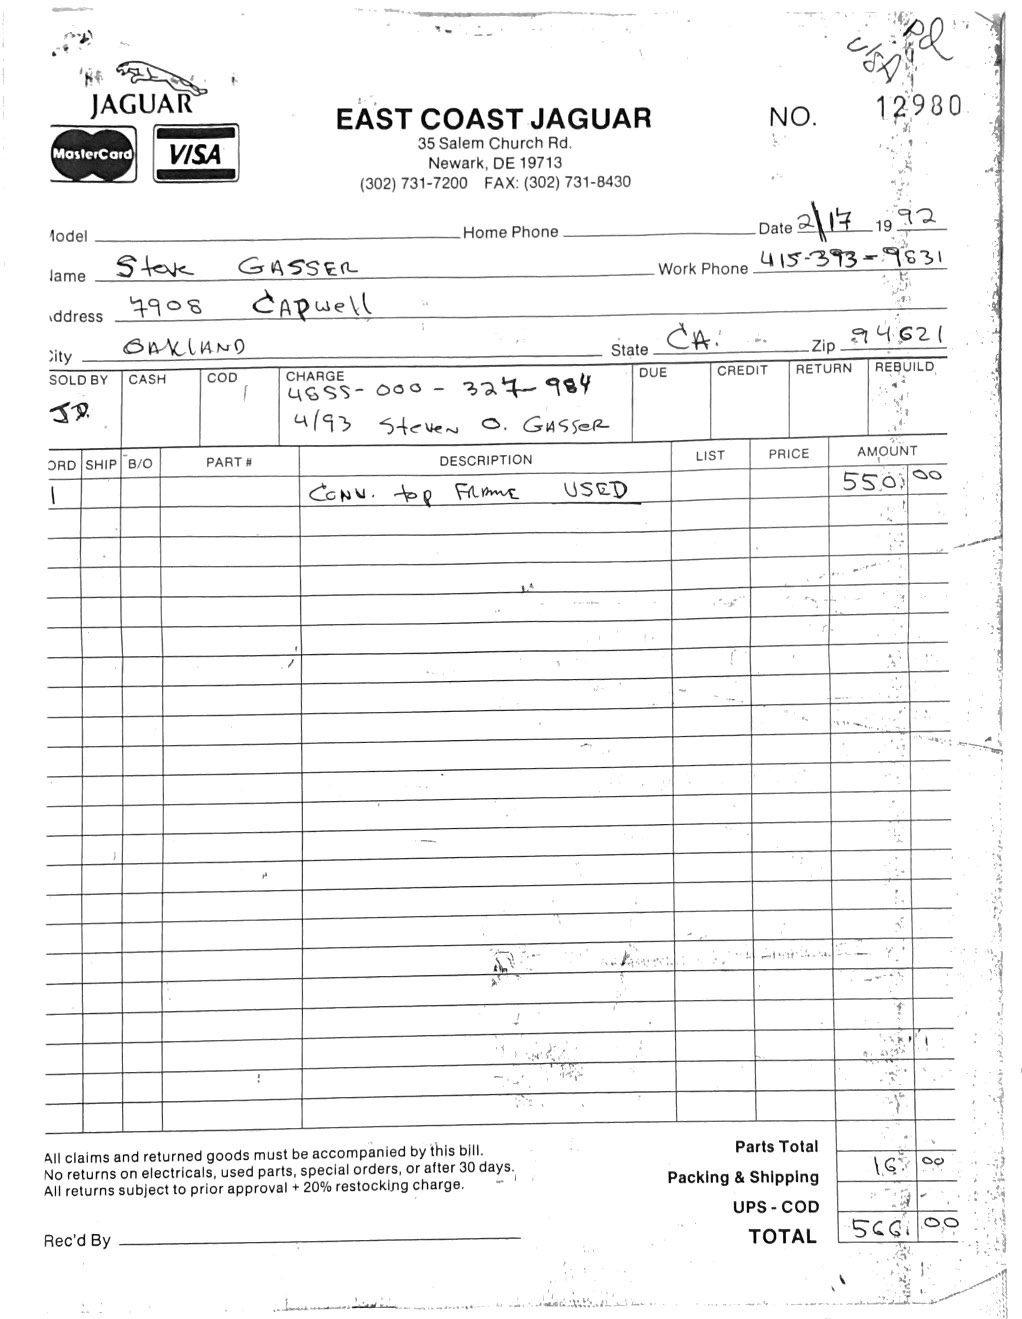 Pd
VISA
JAGUAR
MasterCard VISA
EAST COAST JAGUAR
35 Salem Church Rd.
Newark, DE 19713
(302) 731-7200 FAX: (302) 731-8430
NO. 12980
lodel Home Phone Date 2/17 1992
lame Steve GASSER Work Phone 415-393-9831
ddress 7908 CAPwell
ity OAKLAND State CA. Zip 94621
SOLD BY CASH COD CHARGE DUE CREDIT RETURN REBUILD
J.D. 4855-000-327-984
4/93 Steven O. GASSER
ORD SHIP B/O PART # DESCRIPTION LIST PRICE AMOUNT
1 CONV. top FRAME USED 550.00
All claims and returned goods must be accompanied by this bill.
No returns on electricals, used parts, special orders, or after 30 days.
All returns subject to prior approval + 20% restocking charge.
Parts Total
Packing & Shipping 16 00
UPS - COD
TOTAL 566.00
Rec'd By